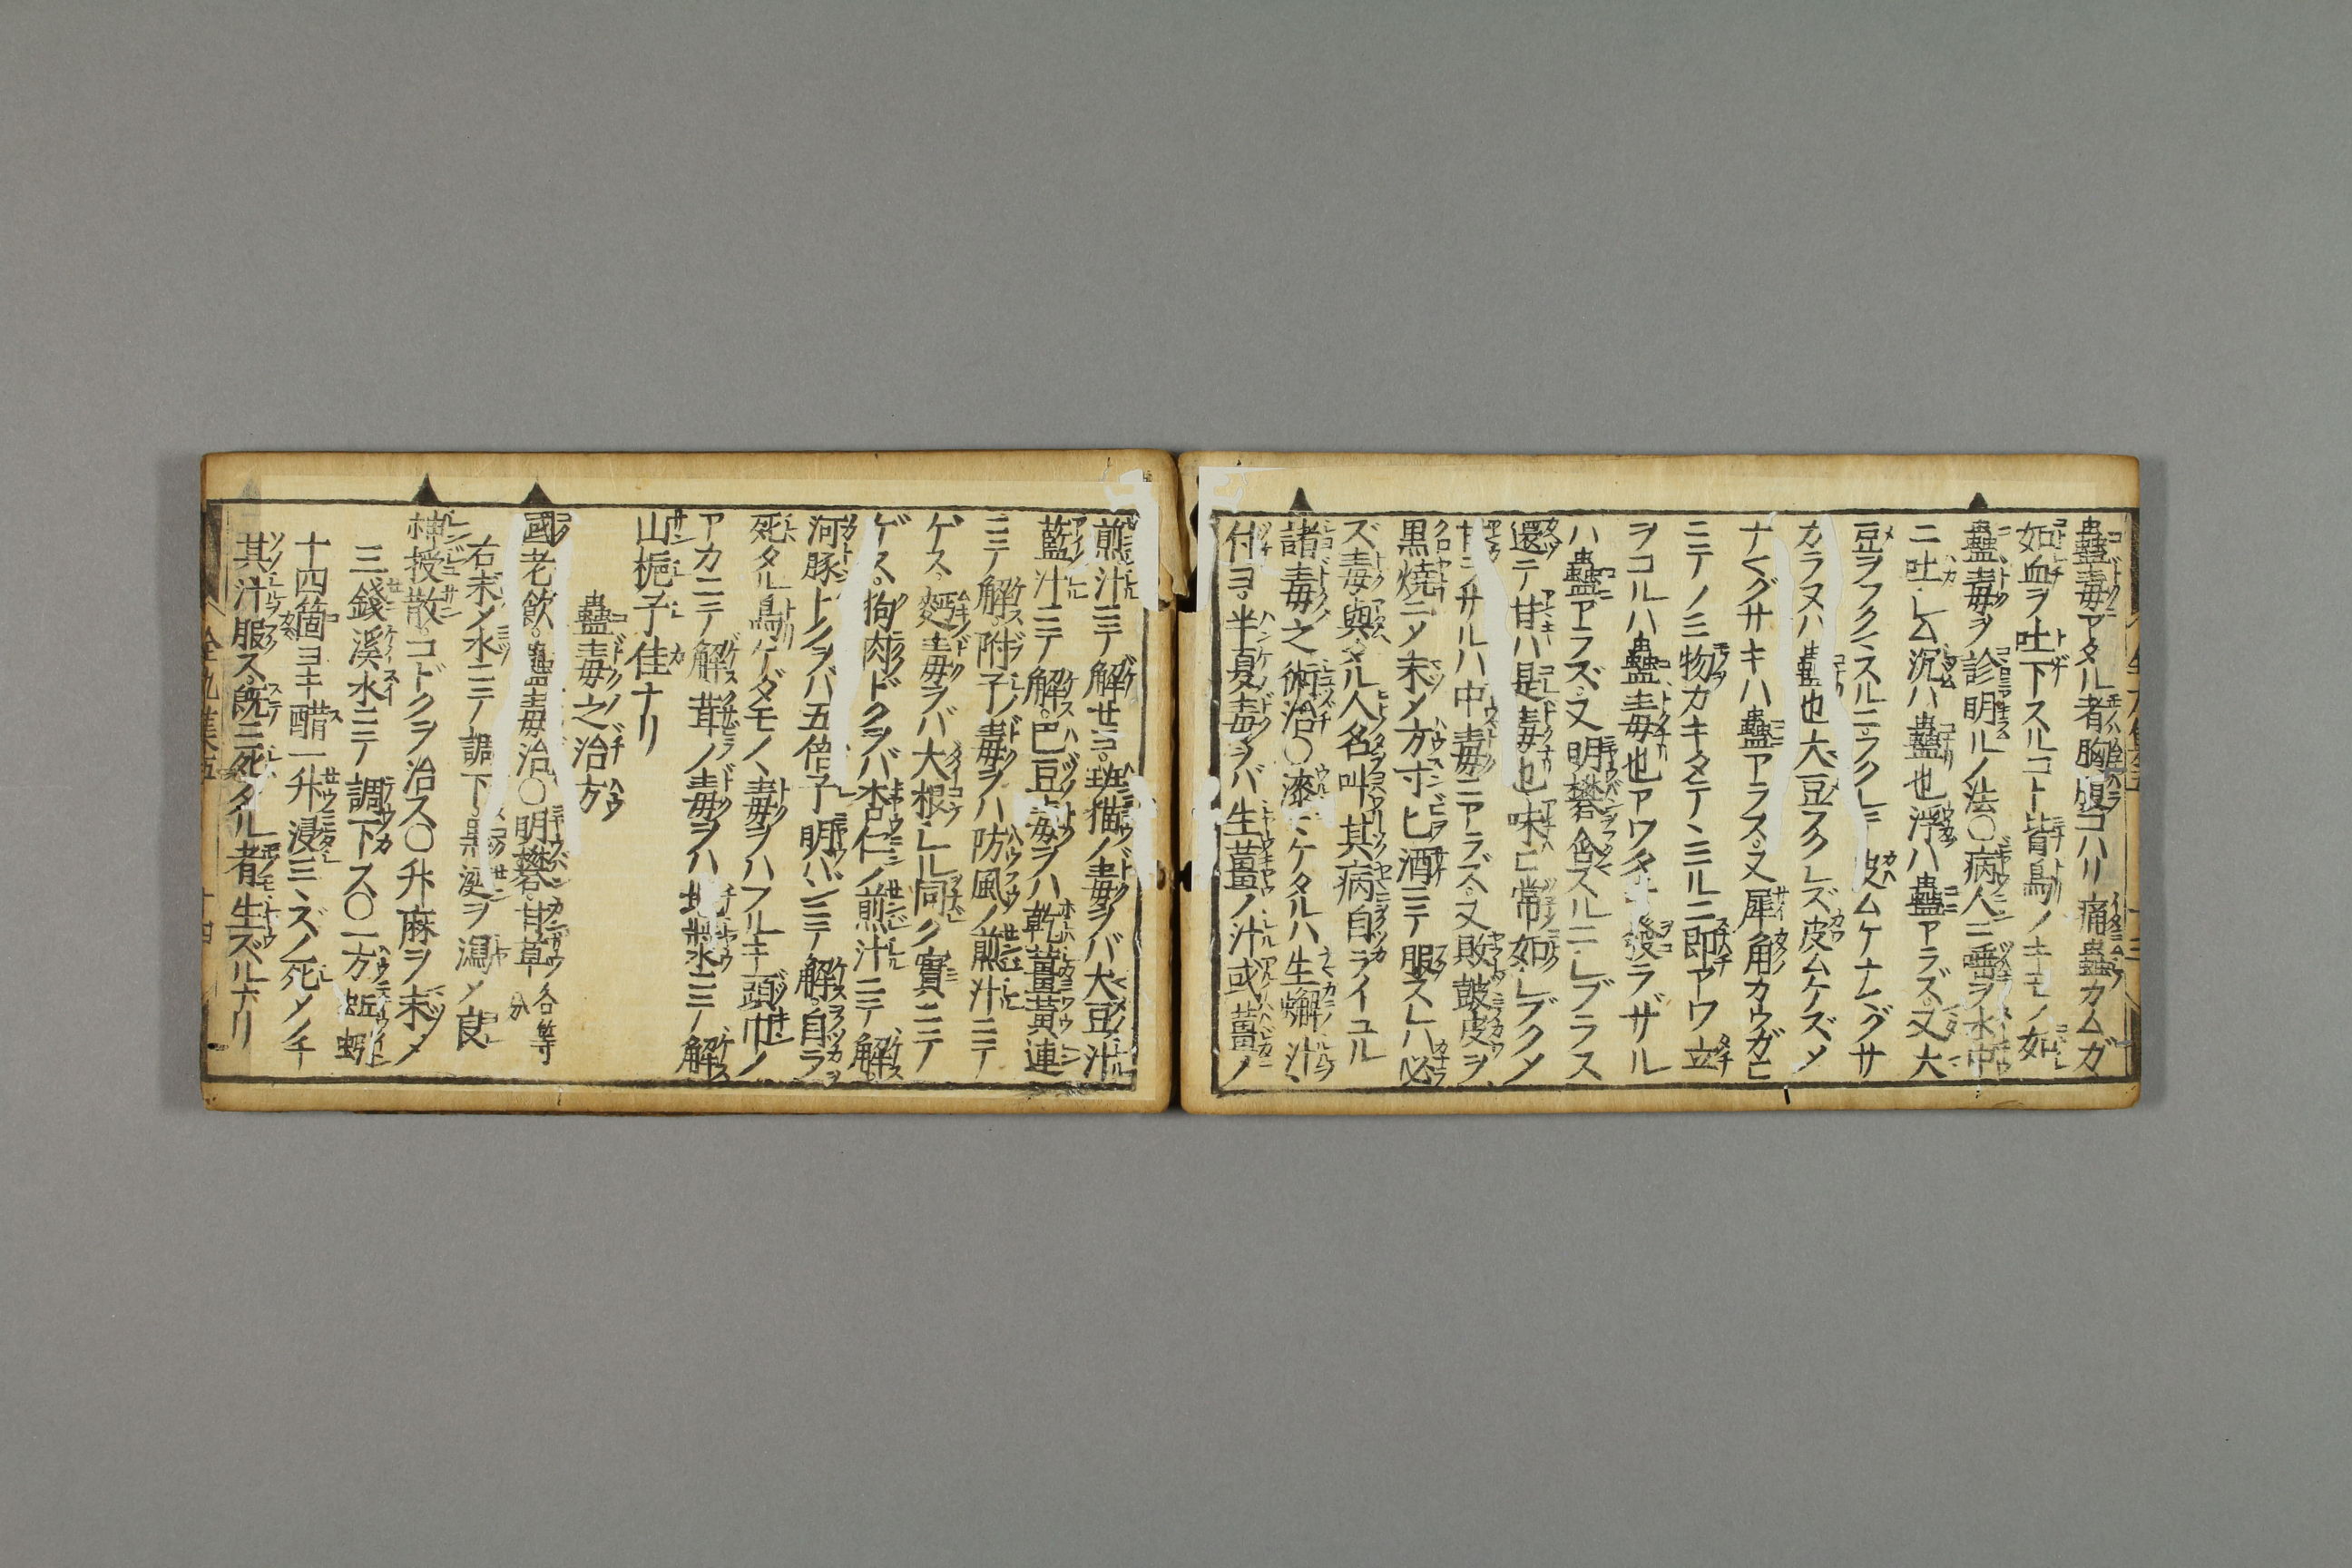 蠱毒アタル者胸腹コハリ痛蟲カムガ
如血ヲ吐下スルコト皆鳥ノキモノ如
蠱毒ヲ診明ルノ法〇病人ニ唾ヲ水中
ニ吐シム沉ハ蠱也浮ハ蠱アラズ又大
豆ヲフクミスルニフクレテ皮ムケナマグサ
カラヌハ蠱也大豆フクレズ皮ムケズメ
ナマグサキハ蠱アラス又犀角カウガヒ
ニテノミ物カキタテヽミルニ即アワ立
ヲコルハ蠱毒也アワタチ發ラザル
ハ蠱アラズ又明礬含スルニシブラス
還テ甘ハ是毒也味ヒ常如シブクメ
甘ラサルハ中毒ニアラズ又敗皷皮ヲ
黒燒ニメ末メ方寸ヒ酒ニテ服スレハ必
ズ毒與タル人名叫其病自ライユル
諸毒之術治〇漆マケタルハ生蠏汁
付ヨ半夏毒ヲバ生薑ノ汁或薑ノ
煎汁ニテ解セヨ斑猫ノ毒ヲバ大豆汁
藍汁ニテ解巴豆毒ヲハ乾薑黄連
ニテ解附子ノ毒ヲハ防風ノ煎汁ニテ
ゲス麪毒ヲバ大根シル同ク實ニテ
ゲス狗肉ドクヲバ杏仁ノ煎汁ニテ解
河豚トクヲバ五倍子明バンニテ解自ラ
死タル鳥ケダモノヽ毒ヲハフルキ頭巾ノ
アカニテ解茸ノ毒ヲハ地漿水ニテ解
山梔子佳ナリ
蠱毒之治方
國老飲蠱毒治〇明礬甘草各等分
右末メ水ニテ調下黒涎ヲ瀉メ良
神授散コドクヲ治ス〇升麻ヲ末メ
三錢溪水ニテ調下ス〇一方蚯蚓
十四箇ヨキ醋一升浸ミヽズノ死メノチ
其汁服ス既ニ死タル者生ズルナリ
十四